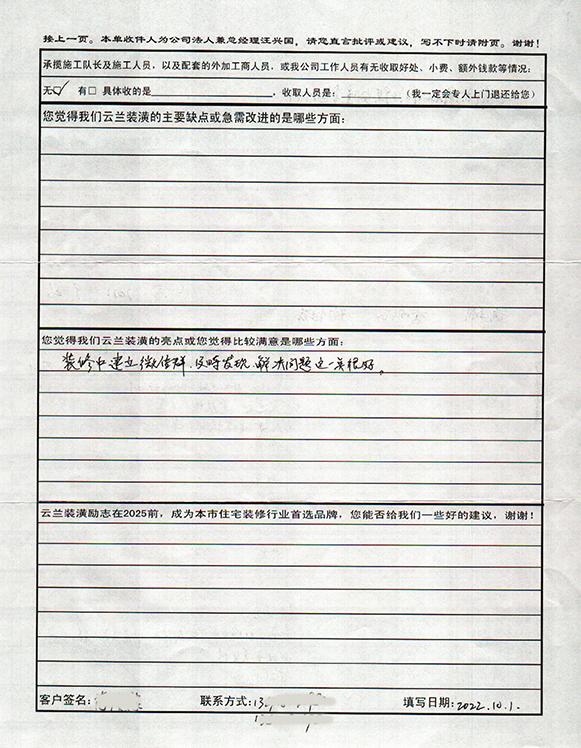 接上一页。本单收件人为公司法人兼总经理汪兴国，请您直言批评或建议，写不下时请附页。谢谢！
承揽施工队长及施工人员，以及配套的外加工商人员，或我公司工作人员有无收取好处、小费、额外钱款等情况：
无☑ 有□ 具体收的是____________，收取人是：________（我一定会专人上门退还给您）
您觉得我们云兰装潢的主要缺点或急需改进的是哪些方面：
您觉得我们云兰装潢的亮点或您觉得比较满意是哪些方面：
装修中建立微信群，及时发现、解决问题这一条很好。
云兰装潢励志在2025前，成为本市住宅装修行业首选品牌，您能否给我们一些好的建议，谢谢！
客户签名： 联系方式：13 填写日期：2022.10.1.